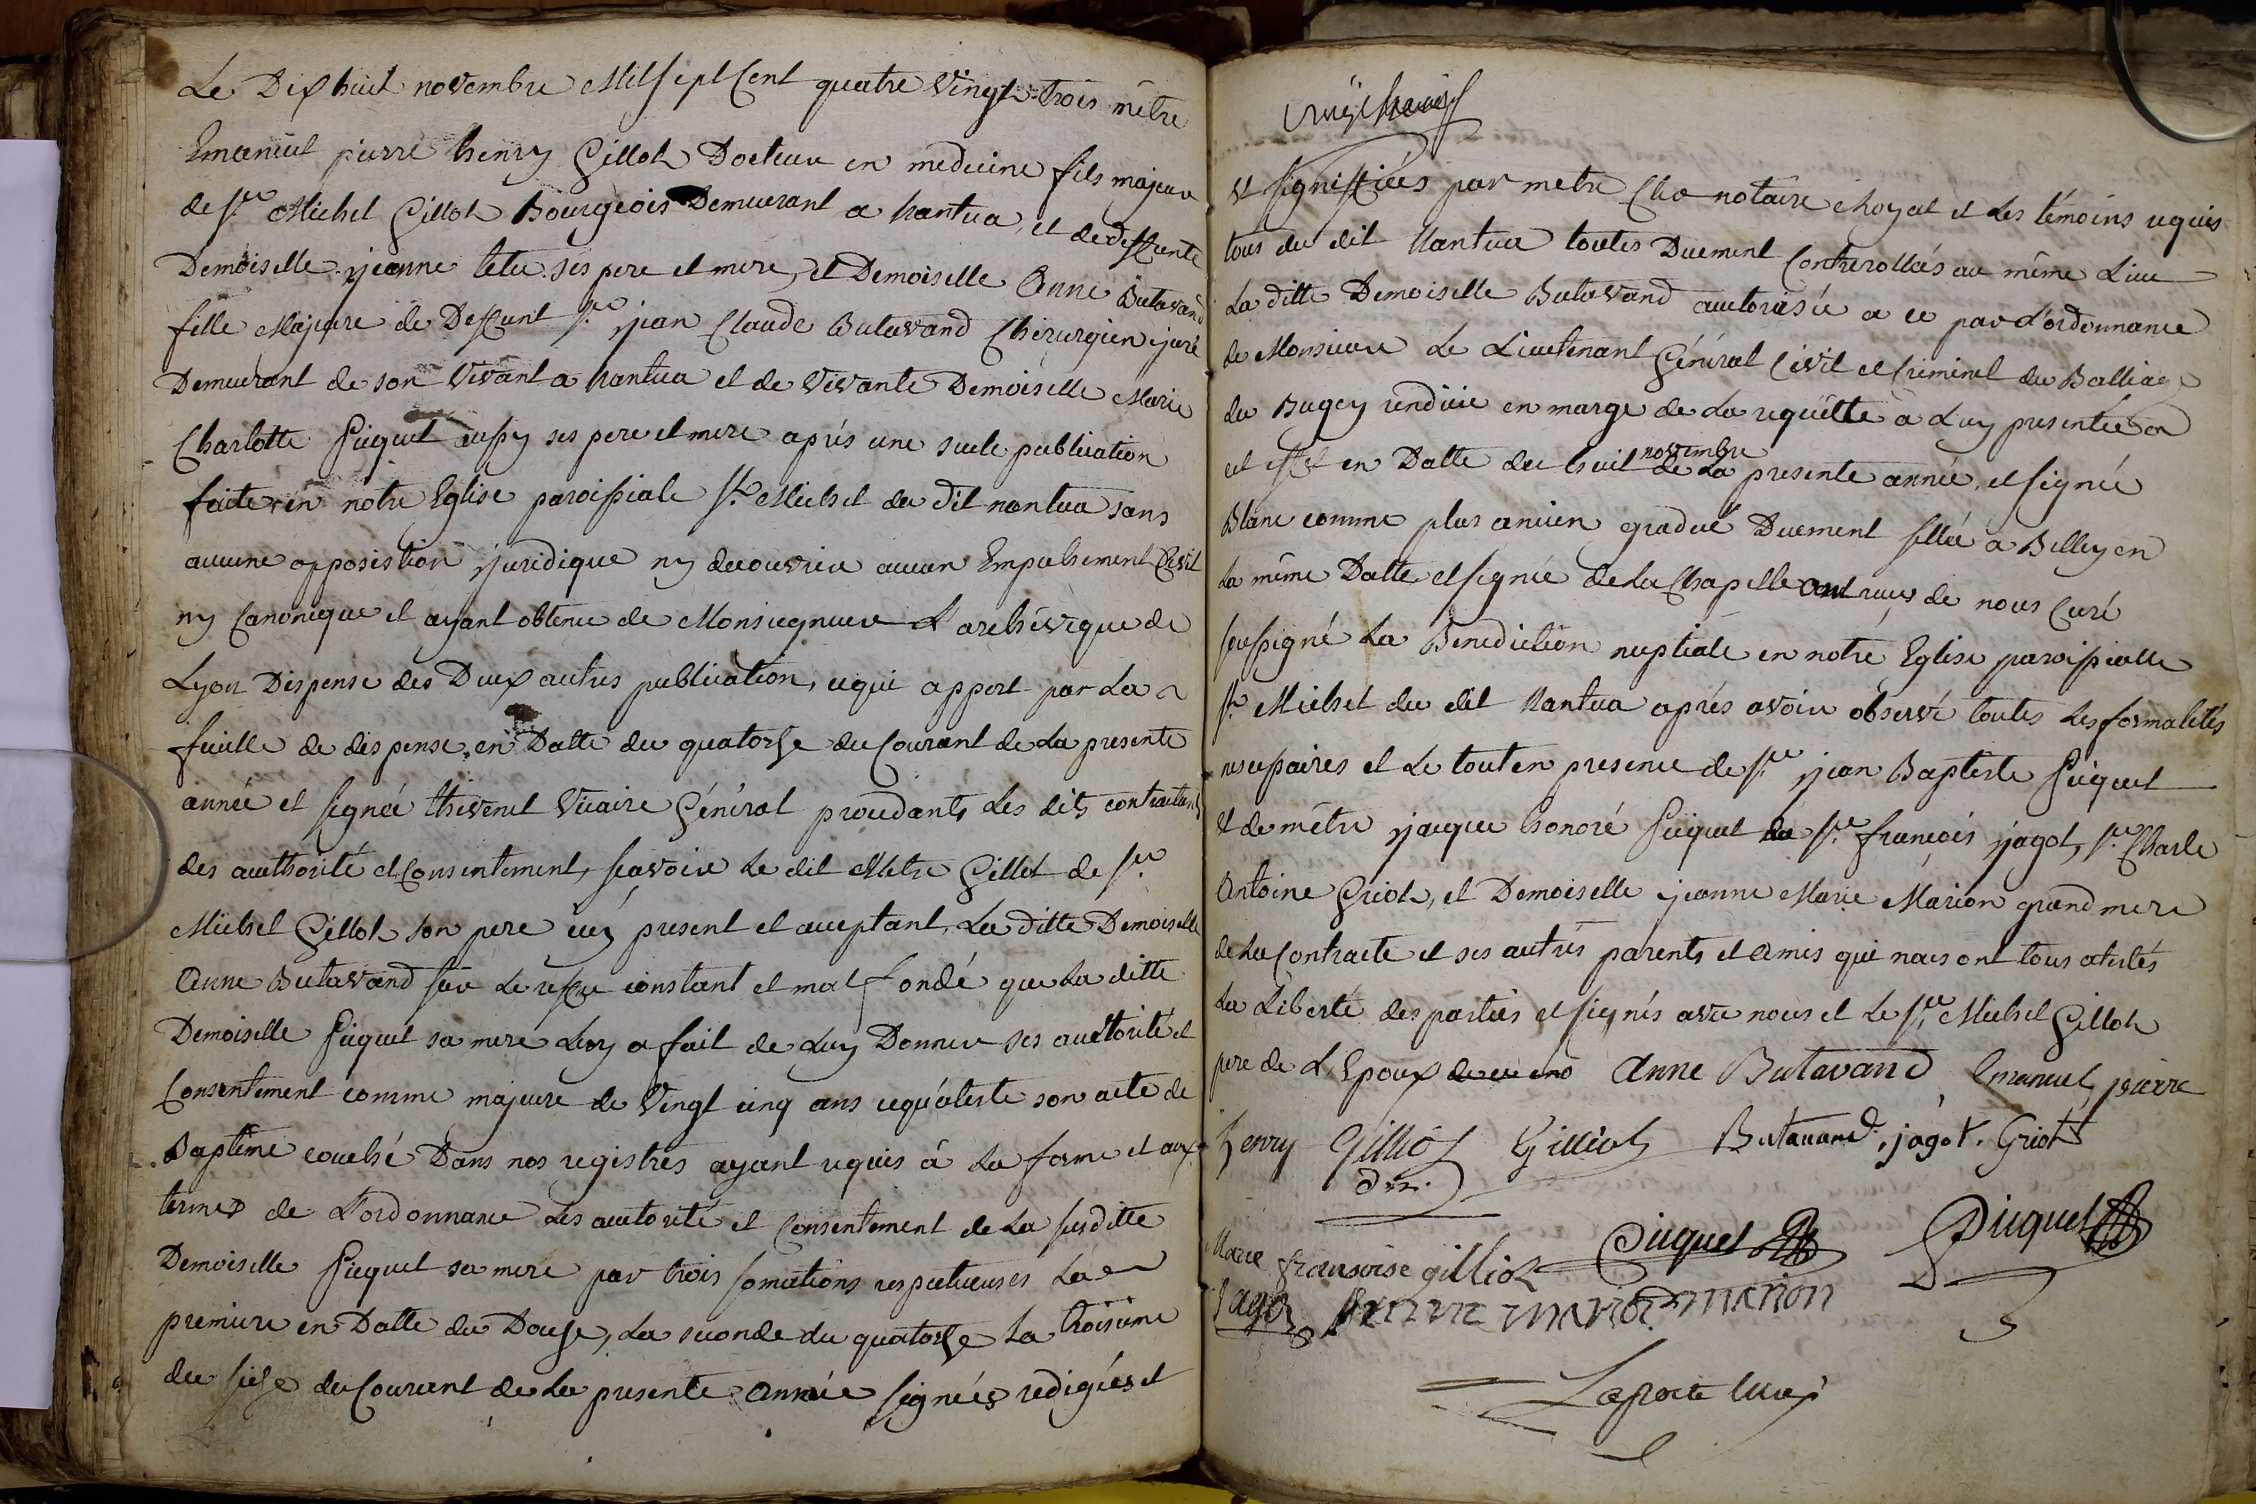 Le Dix huit novembre Mil sept Cent quatre Vingt-trois mêtre
Emanuel pierre henry Gillot Docteur en medecine fils majeur
de sr. Michel Gillot Bourgeois Demeurant a Nantua, et de deffunte
Demoiselle jeanne tetu ses pere et mere, et Demoiselle Anne Butavand
fille Majeure de Deffunt sr. jean Claude Butavand Chirurgien juré
Demeurant de son Vivant a Nantua et de Vivante Demoiselle Marie
Charlotte Picquet aussy ses pere et mere aprés une seule publication
faite en notre Eglise paroissiale st. Michel du dit nantua sans
aucune opposistion juridique ny decouvrir aucun Empechement Civil
ny Canonique et ayant obtenu de Monsiegneur L'archévêque de
Lyon Dispense des Deux autres publication, ce qui appert par La
feuille de dispense en Datte du quatorze du Courant de La presente
année et signée thevenet Vicaire Général procedants Les dits contractants
des authorité et Consentement, sçavoir Le dit Metre Gillot de sr.
Michel Gillot son pere icy present et acceptant, La ditte Demoiselle
Anne Butavand sur Le refus constant et mal fondé que La ditte
Demoiselle Picquet sa mere Luy a fait de Luy Donner ses auctorité et
Consentement comme majeure de Vingt cinq ans ce qu'ateste son acte de
Baptême couché Dans nos registres ayant requis â La forme et aux
termes de L'ordonnance Les autorité et Consentement de La susditte
Demoiselle Picquet sa mere par trois somations respectueuses La
premiere en Datte du Douze, La seconde du quatorze La troisieme
du seize du Courant de La presente Année signées redigées et
et signiffiées par metre notaire Royal et Les témoins requis
tous du dit Nantua toutes Duement Contrerollées au même Lieu
La ditte Demoiselle Butavand autorisée a ce par L'ordonnance
de Monsieur Le Lieutenant Général Civil et Criminel du Balliage
du Bugey rendüe en marge de La requette â Luy presentée a
cet effet en Datte du huit novembre de La presente année, et signée
Blanc comme plus ancien gradué Duement sellée a Belley en
La même Datte et signée de La Chapelle ont reçus de nous Curé
soussigné La Benediction nuptiale en notre Eglise paroissialle
st. Michel du dit Nantua aprés avoir observé toutes Les formalités
necessaires et Le tout en presence de sr. jean Baptiste Picquet
et de mêtre jacque honoré Picquet sr. françois jagot, sr. Charle
Antoine Griot, et Demoiselle jeanne Marie Marion grand mere
de La Contracte et ses autres parents et Amis qui nous ont tous atestés
La Liberté des parties et signés avec nous et Le sr. Michel Gillot
pere de L'Epoux Anne Butavand Emanuel pierre
henry Gilliot Gilliot Butavand. jagot. Griot
d m.
Marie fransoise gilliot Picquet Picquet
jagot jeanne marie marion
Laporte Curé